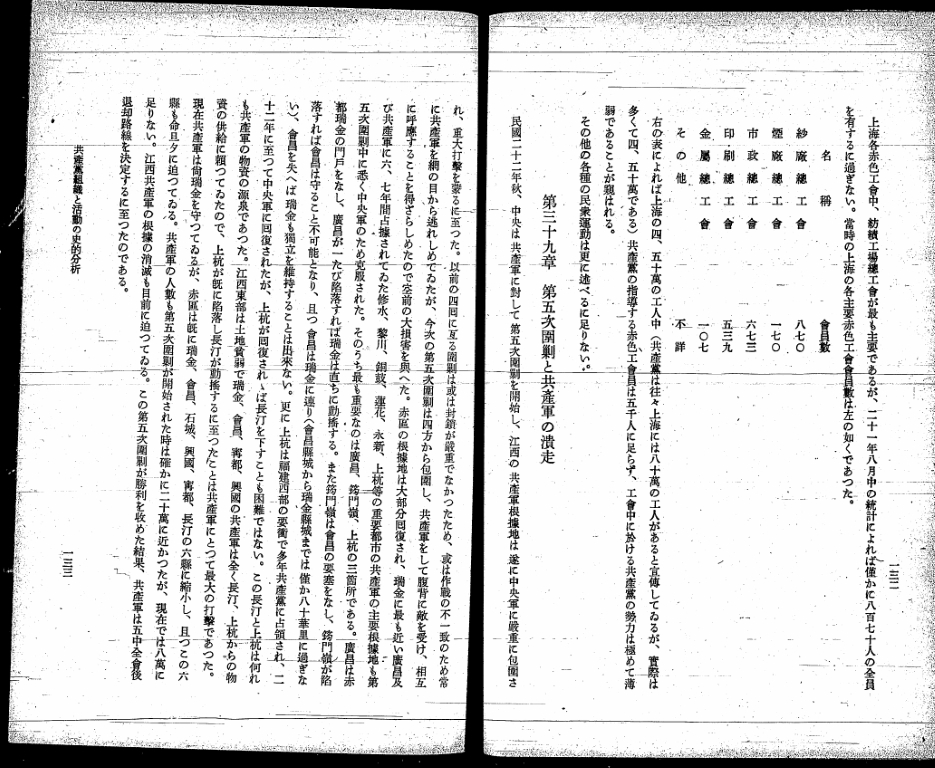 一三二
上海各赤色工會中、紡積工場總工會が最も主要であるが、二十一年八月中の統計によれば僅かに八百七十人の全員
を有するに過ぎない。當時の上海の各主要赤色工會會員數は左の如くであつた。
名稱 會員數
紗廠總工會 八七〇
煙廠總工會 一七〇
市政總工會 六七三
印刷總工會 五三九
金屬總工會 一〇七
その他 不詳
右の表によれば上海の四、五十萬の工人中(共產黨は往々上海には八十萬の工人があると宣傳してゐるが、實際は
多くて四、五十萬である)共產黨の指導する赤色工會員は五千人に足らず、工會中に於ける共產黨の勢力は極めて薄
弱であることが窺はれる。
その他の各種の民衆運動は更に述べるに足りない。
第三十九章 第五次圍剿と共產軍の潰走
民國二十二年秋、中央は共產軍に對して第五次圍剿を開始し、江西の共產軍根據地は遂に中央軍に嚴重に包圍さ
れ、重大打擊を蒙るに至つた。以前の四回に亙る圍剿は或は封鎖が嚴重でなかつたため、或は作戰の不一致のため常
に共產軍を網の目から逃れしめてゐたが、今次の第五次圍剿は四方から包圍し、共產軍をして腹背に敵を受け、相互
に呼應することを得さらしめたので空前の大損害を與へた。赤區の根據地は大部分回復され、瑞金に最も近い廣昌及
び共產軍に六、七年間占據されてゐた修水、黎川、銅鼓、蓮花、永新、上杭等の重要都市の共產軍の主要根據地も第
五次圍剿中に悉く中央軍のため克服された。そのうち最も重要なのは廣昌、筠門嶺、上杭の三箇所である。廣昌は赤
都瑞金の門戶をなし、廣昌が一たび陷落すれば瑞金は直ちに動搖する。また筠門嶺は會昌の要塞をなし、筠門嶺が陷
落すれば會昌は守ること不可能となり、且つ會昌は瑞金に連り(會昌縣城から瑞金縣城までは僅か八十華里に過ぎな
い)、會昌を失へば瑞金も獨立を維持することは出來ない。更に上杭は福建西部の要衝で多年共產黨に占領され、二
十二年に至つて中央軍に回復されたが、上杭が回復されゝば長汀を下すことも困難ではない。この長汀と上杭は何れ
も共產軍の物資の源泉であつた。江西東部は土地貧弱で瑞金、會昌、寗都、興國の共產軍は全く長汀、上杭からの物
資の供給に賴つてゐたので、上杭が旣に陷落し長汀が動搖するに至つたことは共產軍にとつて最大の打擊であつた。
現在共產軍は尙瑞金を守つてゐるが、赤區は旣に瑞金、會昌、石城、興國、寗都、長汀の六縣に縮小し、且つこの六
縣も命旦夕に迫つてゐる。共產軍の人數も第五次圍剿が開始された時は確かに二十萬に近かつたが、現在では八萬に
足りない。江西共產軍の根據の消滅も目前に迫つてゐる。この第五次圍剿が勝利を收めた結果、共產軍は五中全會後
退却路線を決定するに至つたのである。
共產黨組織と活動の史的分析
一三三